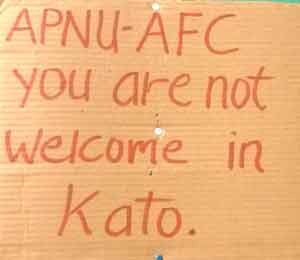 APNU-AFC
you are not
welcome in
Kato.